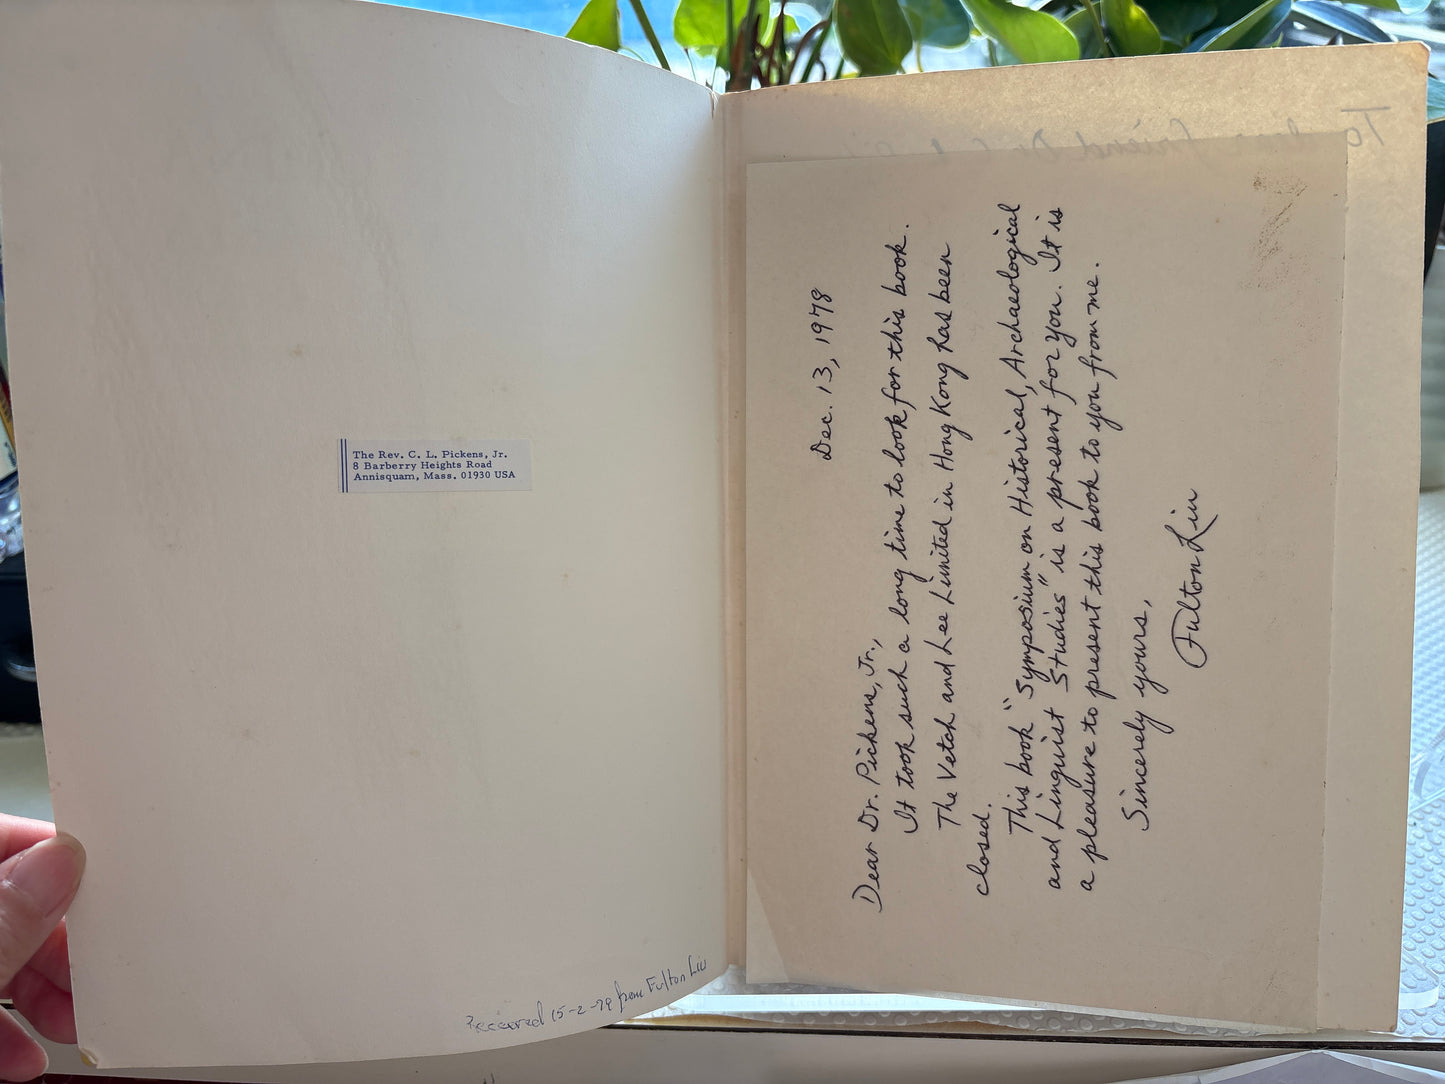 The Rev. C. L. Pickens, Jr.
8 Barberry Heights Road
Annisquam, Mass. 01930 USA
Received 15-2-79 from Fulton Liu
Dec. 13, 1978
Dear Dr. Pickens, Jr.,
It took such a long time to look for this book.
The Vetch and Lee Limited in Hong Kong has been
closed.
This book "Symposium on Historical, Archaeological
and Linguist Studies" is a present for you. It is
a pleasure to present this book to you from me.
Sincerely yours,
Fulton Liu
To friend Dr.